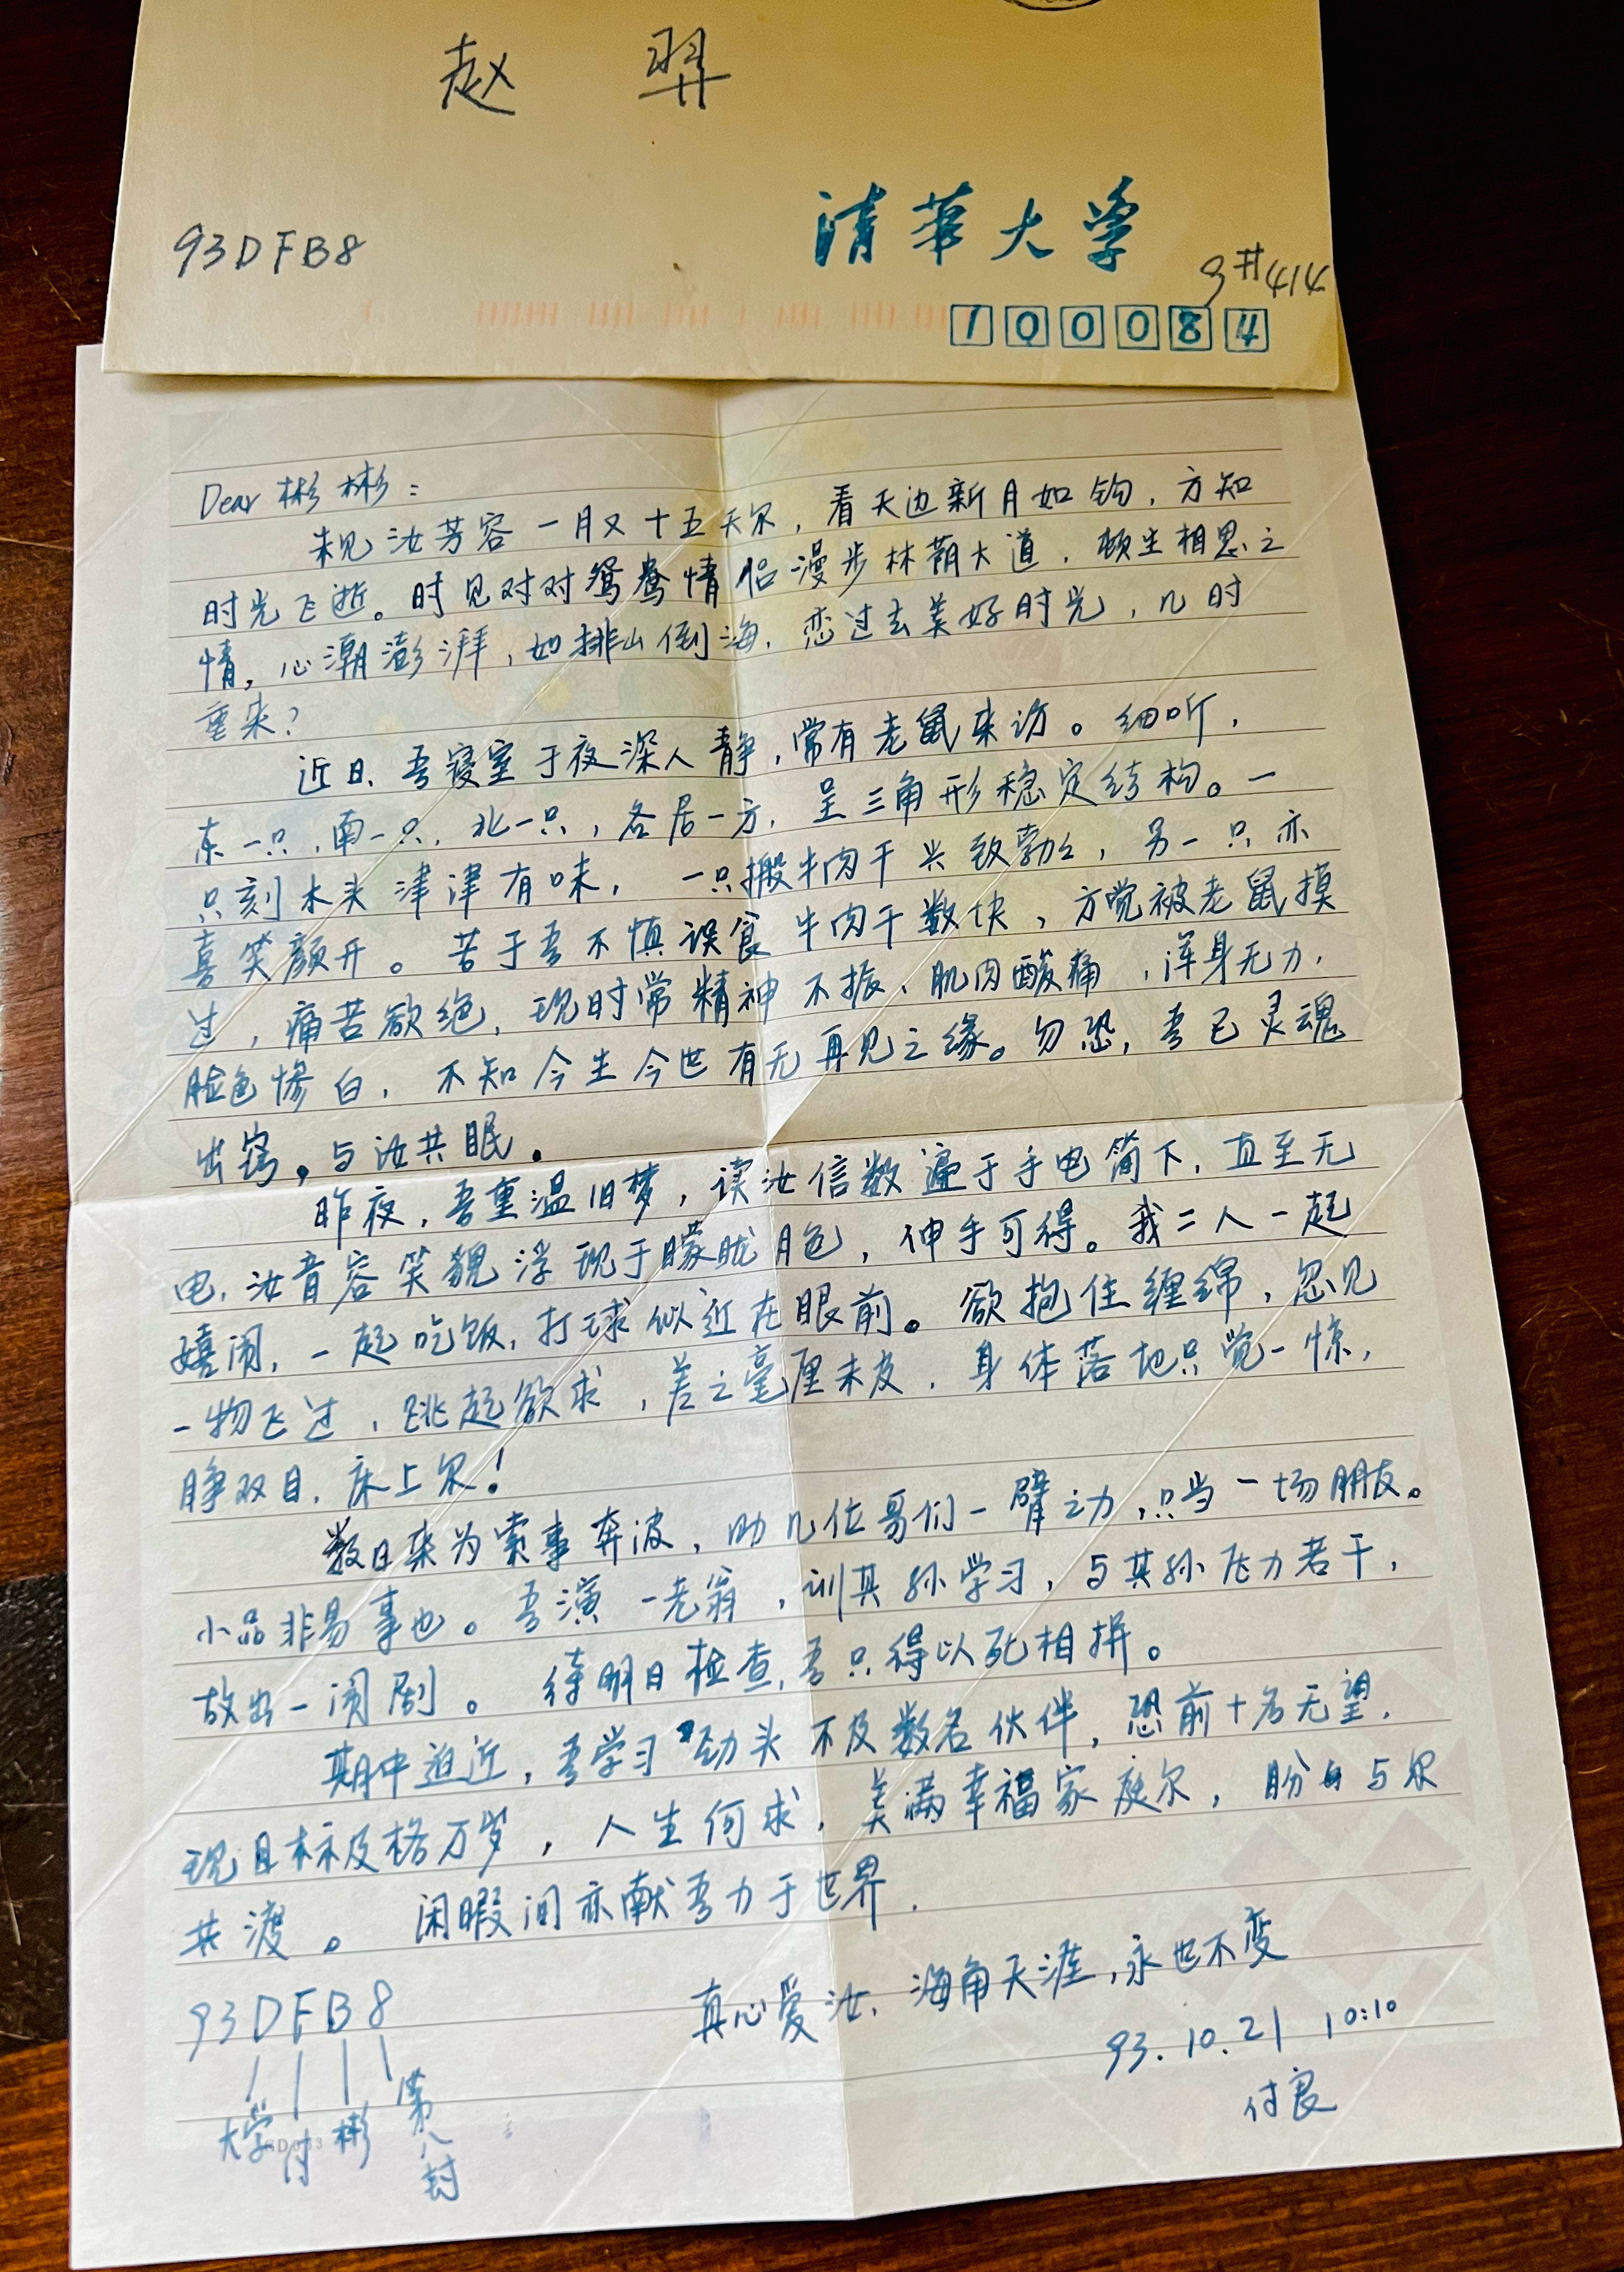 赵 羿
清華大学
93DFB8
9#414
100084
Dear 彬彬：
未见汝芳容一月又十五天尔，看天边新月如钩，方知
时光飞逝。时见对对鸳鸯情侣漫步林荫大道，顿生相思之
情，心潮澎湃，如排山倒海，恋过去美好时光，几时
重来？
近日，吾寝室于夜深人静，常有老鼠来访。细听，
东一只，南一只，北一只，各居一方，呈三角形稳定结构。一
只刻木头津津有味，一只搬牛肉干兴致勃勃，另一只亦
喜笑颜开。苦于吾不慎误食牛肉干数块，方觉被老鼠摸
过，痛苦欲绝，现时常精神不振、肌肉酸痛，浑身无力，
脸色惨白，不知今生今世有无再见之缘。勿恐，吾已灵魂
出窍，与汝共眠。
昨夜，吾重温旧梦，读汝信数遍于手电筒下，直至无
电，汝音容笑貌浮现于朦胧月色，伸手可得。我二人一起
嬉闹，一起吃饭，打球似近在眼前。欲抱住缠绵，忽见
一物飞过，跳起欲求，差之毫厘未及，身体落地只觉一惊，
睁双目，床上尔！
数日来为索事奔波，助几位哥们一臂之力，只当一场朋友。
小品非易事也。吾演一老翁，训其孙学习，与其孙 力若干，
故出一闹剧。待明日检查，吾只得以死相拼。
期中迫近，吾学习劲头不及数名伙伴，恐前十名无望，
现目标及格万岁，人生何求，美满幸福家庭尔，盼与尔
共渡。闲暇间亦献吾力于世界．
真心爱汝，海角天涯，永世不变
93.10.21 10:10
付良
93DFB8
大学 付 彬 第八封